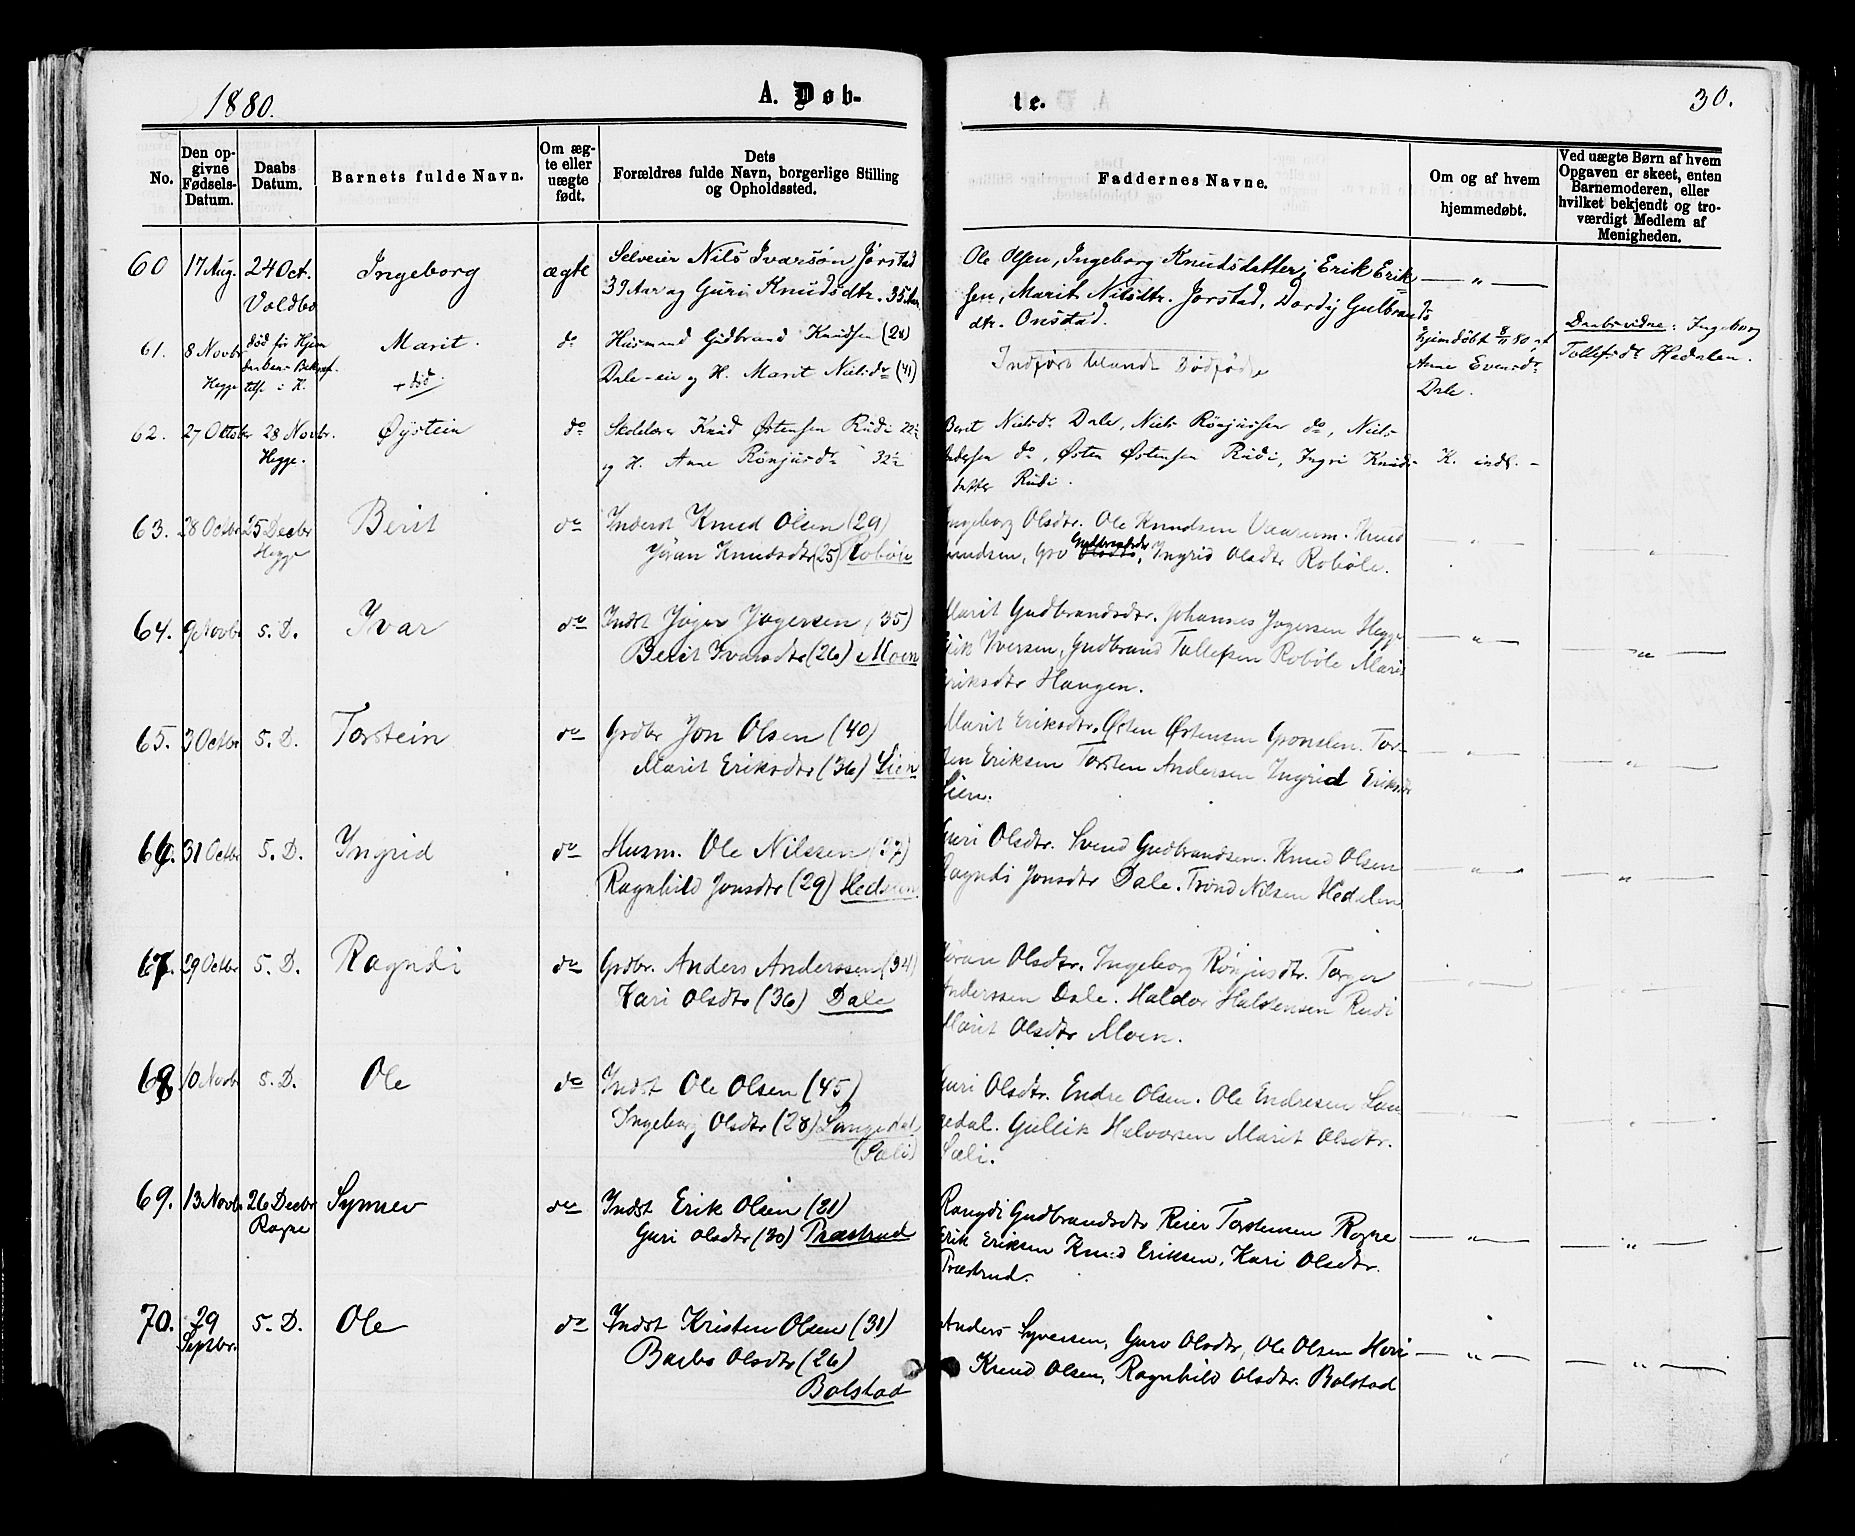 1880.
A. Døb-
te.
30.
No.
Den op-
givne
Fødsels-
Datum.
Daabs
Datum.
Barnets fulde Navn.
Om æg-
te eller
uægte
født.
Dets
Forældres fulde Navn, borgerlige Stilling
og Opholdssted.
Faddernes Navne.
Om og af hvem
hjemmedøbt.
Ved uægte Børn af hvem
Opgaven er skeet, enten
Barnemoderen, eller
hvilket bekjendt og tro-
værdigt Medlem af
Menigheden.
60 17 Aug. 24 Oct. Ingeborg ægte Selveier Nils Ivarsøn Jørstad
Voldbo 39 Aar og Guri Knudsdtr. 35 Aar
Ole Olsen, Ingeborg Knudsdatter, Erik Erik- — " —
sen, Marit Nilsdtr. Jørstad, Dordy Gulbrands
dtr. Onstad.
61. 8 Novbr død før Hjem Marit. do Husmand Gudbrand Knudsen (28)
Hegge daaben Bekræf- + død. Dale-eie og H. Marit Nielsdr (41)
telse i K.
Indført blandt Dødfødte
Hjemdøbt 8/11 80 af
Anne Evensdr
Dale.
Daabsvidne: Ingeborg
Tollefsdr Hedalen.
62. 27 Oktober 28 Novbr. Øystein do Skolelærer Knud Østensen Rudi 22½
Hegge. og H. Anne Rönjusdr 32½
Berit Nielsdr Dale, Niels Rönjussen do, Niels
Andersen do, Østen Østensen Rudi, Ingri Knuds- K. indl. -
datter Rudi.
63. 28 Octbr 25 Decbr Berit do Inderst Knud Olsen (29)
Hegge Jöran Knudsdtr (25) Robøle
Ingeborg Olsdtr. Ole Knudsen Vaarum. Knud
Knudsen, Gro Gudbrandsdtr, Ingrid Olsdtr Robøle.
64. 9 Novbr S. D. Ivar do Indst Jøger Jøgersen (35)
Berit Ivarsdtr (26) Moen
Marit Gudbrandsdtr. Johannes Jøgersen Hegge
Erik Iversen, Gudbrand Tollefsen Robøle Marit
Eriksdtr Haugen.
65. 3 Octbr S. D. Torstein do Grdbr Jon Olsen (40)
Marit Eriksdtr (36) Lien
Marit Eriksdtr. Østen Østensen Gronolen. Tor-
sten Eriksen Torsten Andersen Ingrid Eriksdtr
Lien.
66. 31 Octbr S. D. Ingrid do Husm. Ole Nilssen (37)
Ragnhild Jonsdtr (29) Hedalen
Guri Olsdtr. Svend Gudbrandsen. Knud Olsen
Ragndi Jonsdtr Dale. Trönd Nilsen Hedalen
67. 29 Octbr S. D. Ragndi do Grdbr. Anders Anderssen (34)
Kari Olsdtr (36) Dale
Jöran Olsdtr. Ingeborg Rønjusdtr. Torger
Anderssen Dale. Haldor Halstensen Rudi
Marit Olsdtr Moen.
68 10 Novbr S. D. Ole do Indst Ole Olsen (45)
Ingeborg Olsdtr (28) Langedal
(Sæli)
Guri Olsdtr. Endre Olsen. Ole Endresen Lan
gedal. Gullik Halvorsen Marit Olsdtr.
Sæli.
69. 13 Novbr. 26 Decbr Synnev do Indst Erik Olsen (21)
Rogne Guri Olsdtr (30) Præstrud
Rangdi Gudbrandsdtr Reier Torstensen Rogne
Erik Eriksen Knud Eriksen, Kari Olsdtr.
Præstrud.
70. 29 S. D. Ole do Indst Kristen Olsen (31)
Septbr. Barbo Olsdtr (26)
Bolstad
Anders Syversen, Guro Olsdtr, Ole Olsen Hovi
Knud Olsen, Ragnhild Olsdtr. Bolstad